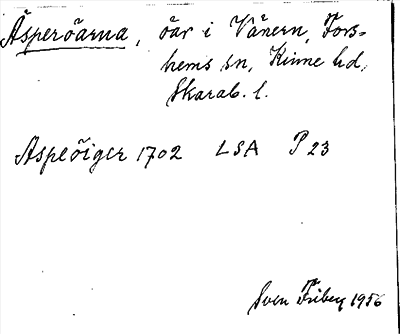 Äsperöarna, öar i Vänern, Fors-
hems sn, Kinne hd,
Skarab. l.
Aspeöiger 1702 LSA P 23
Sven Friberg 1956